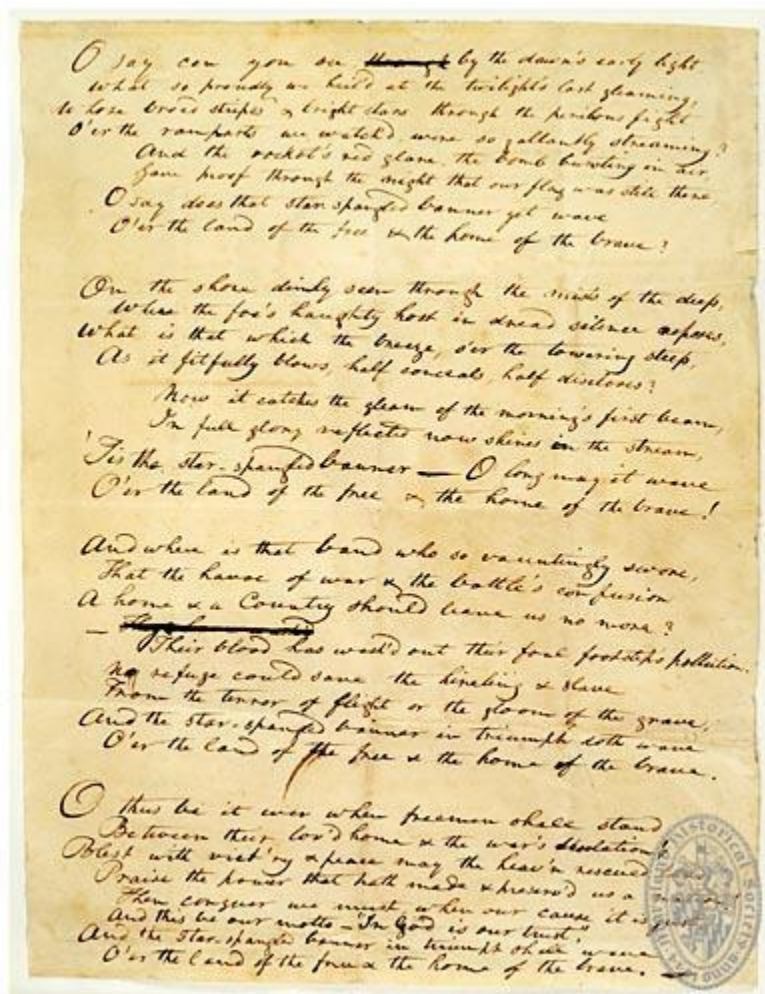 O say can you see through by the dawn's early light
What so proudly we hail'd at the twilight's last gleaming,
Whose broad stripes & bright stars through the perilous fight
O'er the ramparts we watch'd were so gallantly streaming?
And the rocket's red glare, the bomb bursting in air
Gave proof through the night that our flag was still there
O say does that star-spangled banner yet wave
O'er the land of the free & the home of the brave?
On the shore dimly seen through the mists of the deep,
Where the foe's haughty host in dread silence reposes,
What is that which the breeze, o'er the towering steep,
As it fitfully blows, half conceals, half discloses?
Now it catches the gleam of the morning's first beam,
In full glory reflected now shines in the stream,
'Tis the star-spangled banner — O long may it wave
O'er the land of the free & the home of the brave!
And where is that band who so vauntingly swore,
That the havoc of war & the battle's confusion
A home & a Country should leave us no more?
—
Their blood has wash'd out their foul footstep's pollution.
No refuge could save the hireling & slave
From the terror of flight or the gloom of the grave,
And the star-spangled banner in triumph doth wave
O'er the land of the free & the home of the brave.
O thus be it ever when freemen shall stand
Between their lov'd home & the war's desolation!
Blest with vict'ry & peace may the heav'n rescued land
Praise the power that hath made & preserv'd us a nation!
Then conquer we must, when our cause it is just,
And this be our motto — "In God is our trust,"
And the star-spangled banner in triumph shall wave
O'er the land of the free & the home of the brave. —
Historical Society